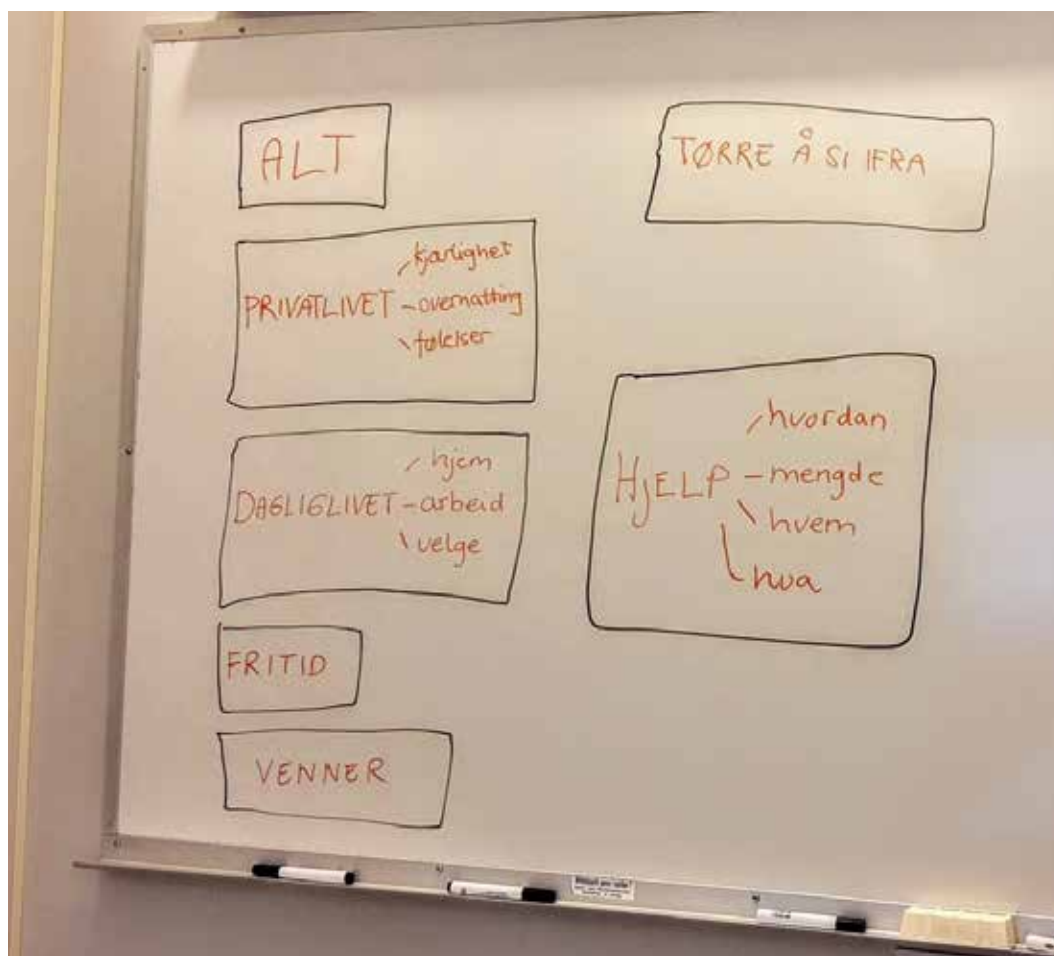 ALT
PRIVATLIVET
kjærlighet
overnatting
følelser
DAGLIGLIVET
hjem
arbeid
velge
FRITID
VENNER
TØRRE Å SI IFRA
HJELP
hvordan
mengde
hvem
hva